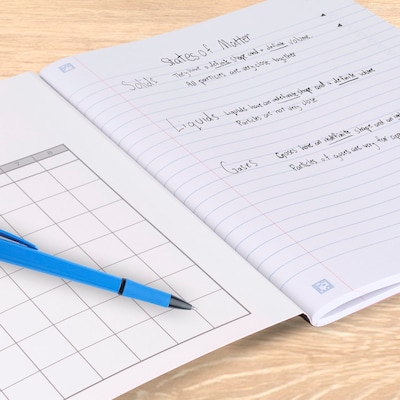 States of Matter
Solids
They have a definite shape and a definite volume.
All particles are very close together
Liquids
Liquids have an indefinite shape and a definite volume
Particles are not very close
Gases
Gases have an indefinite shape and an
Particles of gases are very far